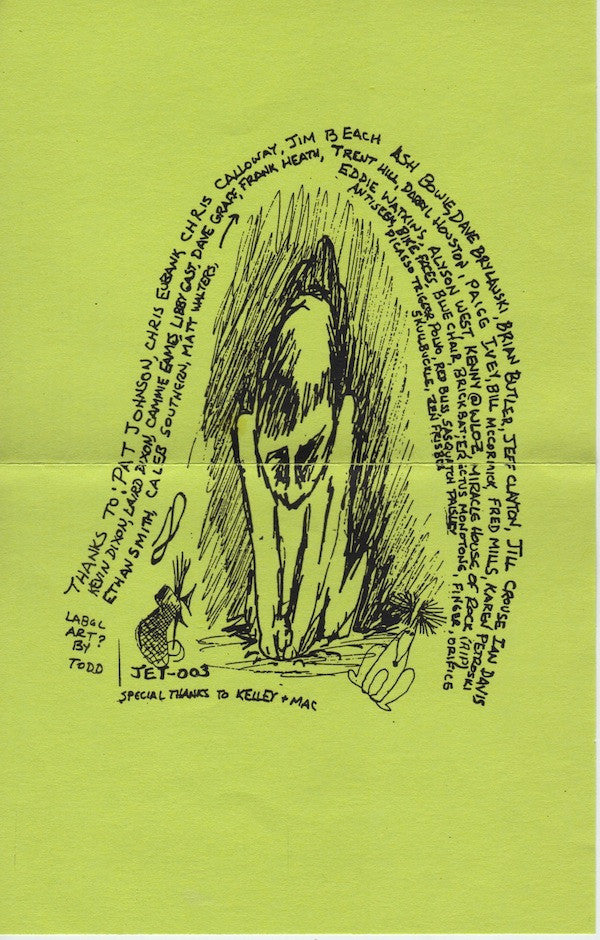 THANKS TO: PAT JOHNSON, CHRIS EUBANK, CHRIS CALLOWAY, JIM BEACH ASH BOWIE, DAVE BRYLAWSKI, BRIAN BUTLER, JEFF CLAYTON, JILL CROUSE IAN DAVIS
KEVIN DIXON, LAIRD DIXON, CAMMIE EAMES LIBBY GAST, DAVE GRAFF, FRANK HEATH, TRENT HILL, DARRYL HOUSTON, PAIGE IVEY, BILL MCCORMICK FRED MILLS, KAREN PETROSKI
ETHAN SMITH, CALEB SOUTHERN, MATT WALTERS,
EDDIE WATKINS, ALYSON WEST, KENNY @ WLOZ, MIRACLE HOUSE OF ROCK (RIP)
ANTISEEN, BIKE, FACES, BLUE CHAIR, BRICKBAT, ERECTUS MONOTONE, FINGER, ORIFICE
PICASSO TRIGGER, POUND, RED BLISS, SASQUATCH PAISLEY
SKULLBUCKLE, ZEN FRISBEE
LABEL
ART?
BY
TODD
JET-003
SPECIAL THANKS TO KELLEY + MAC